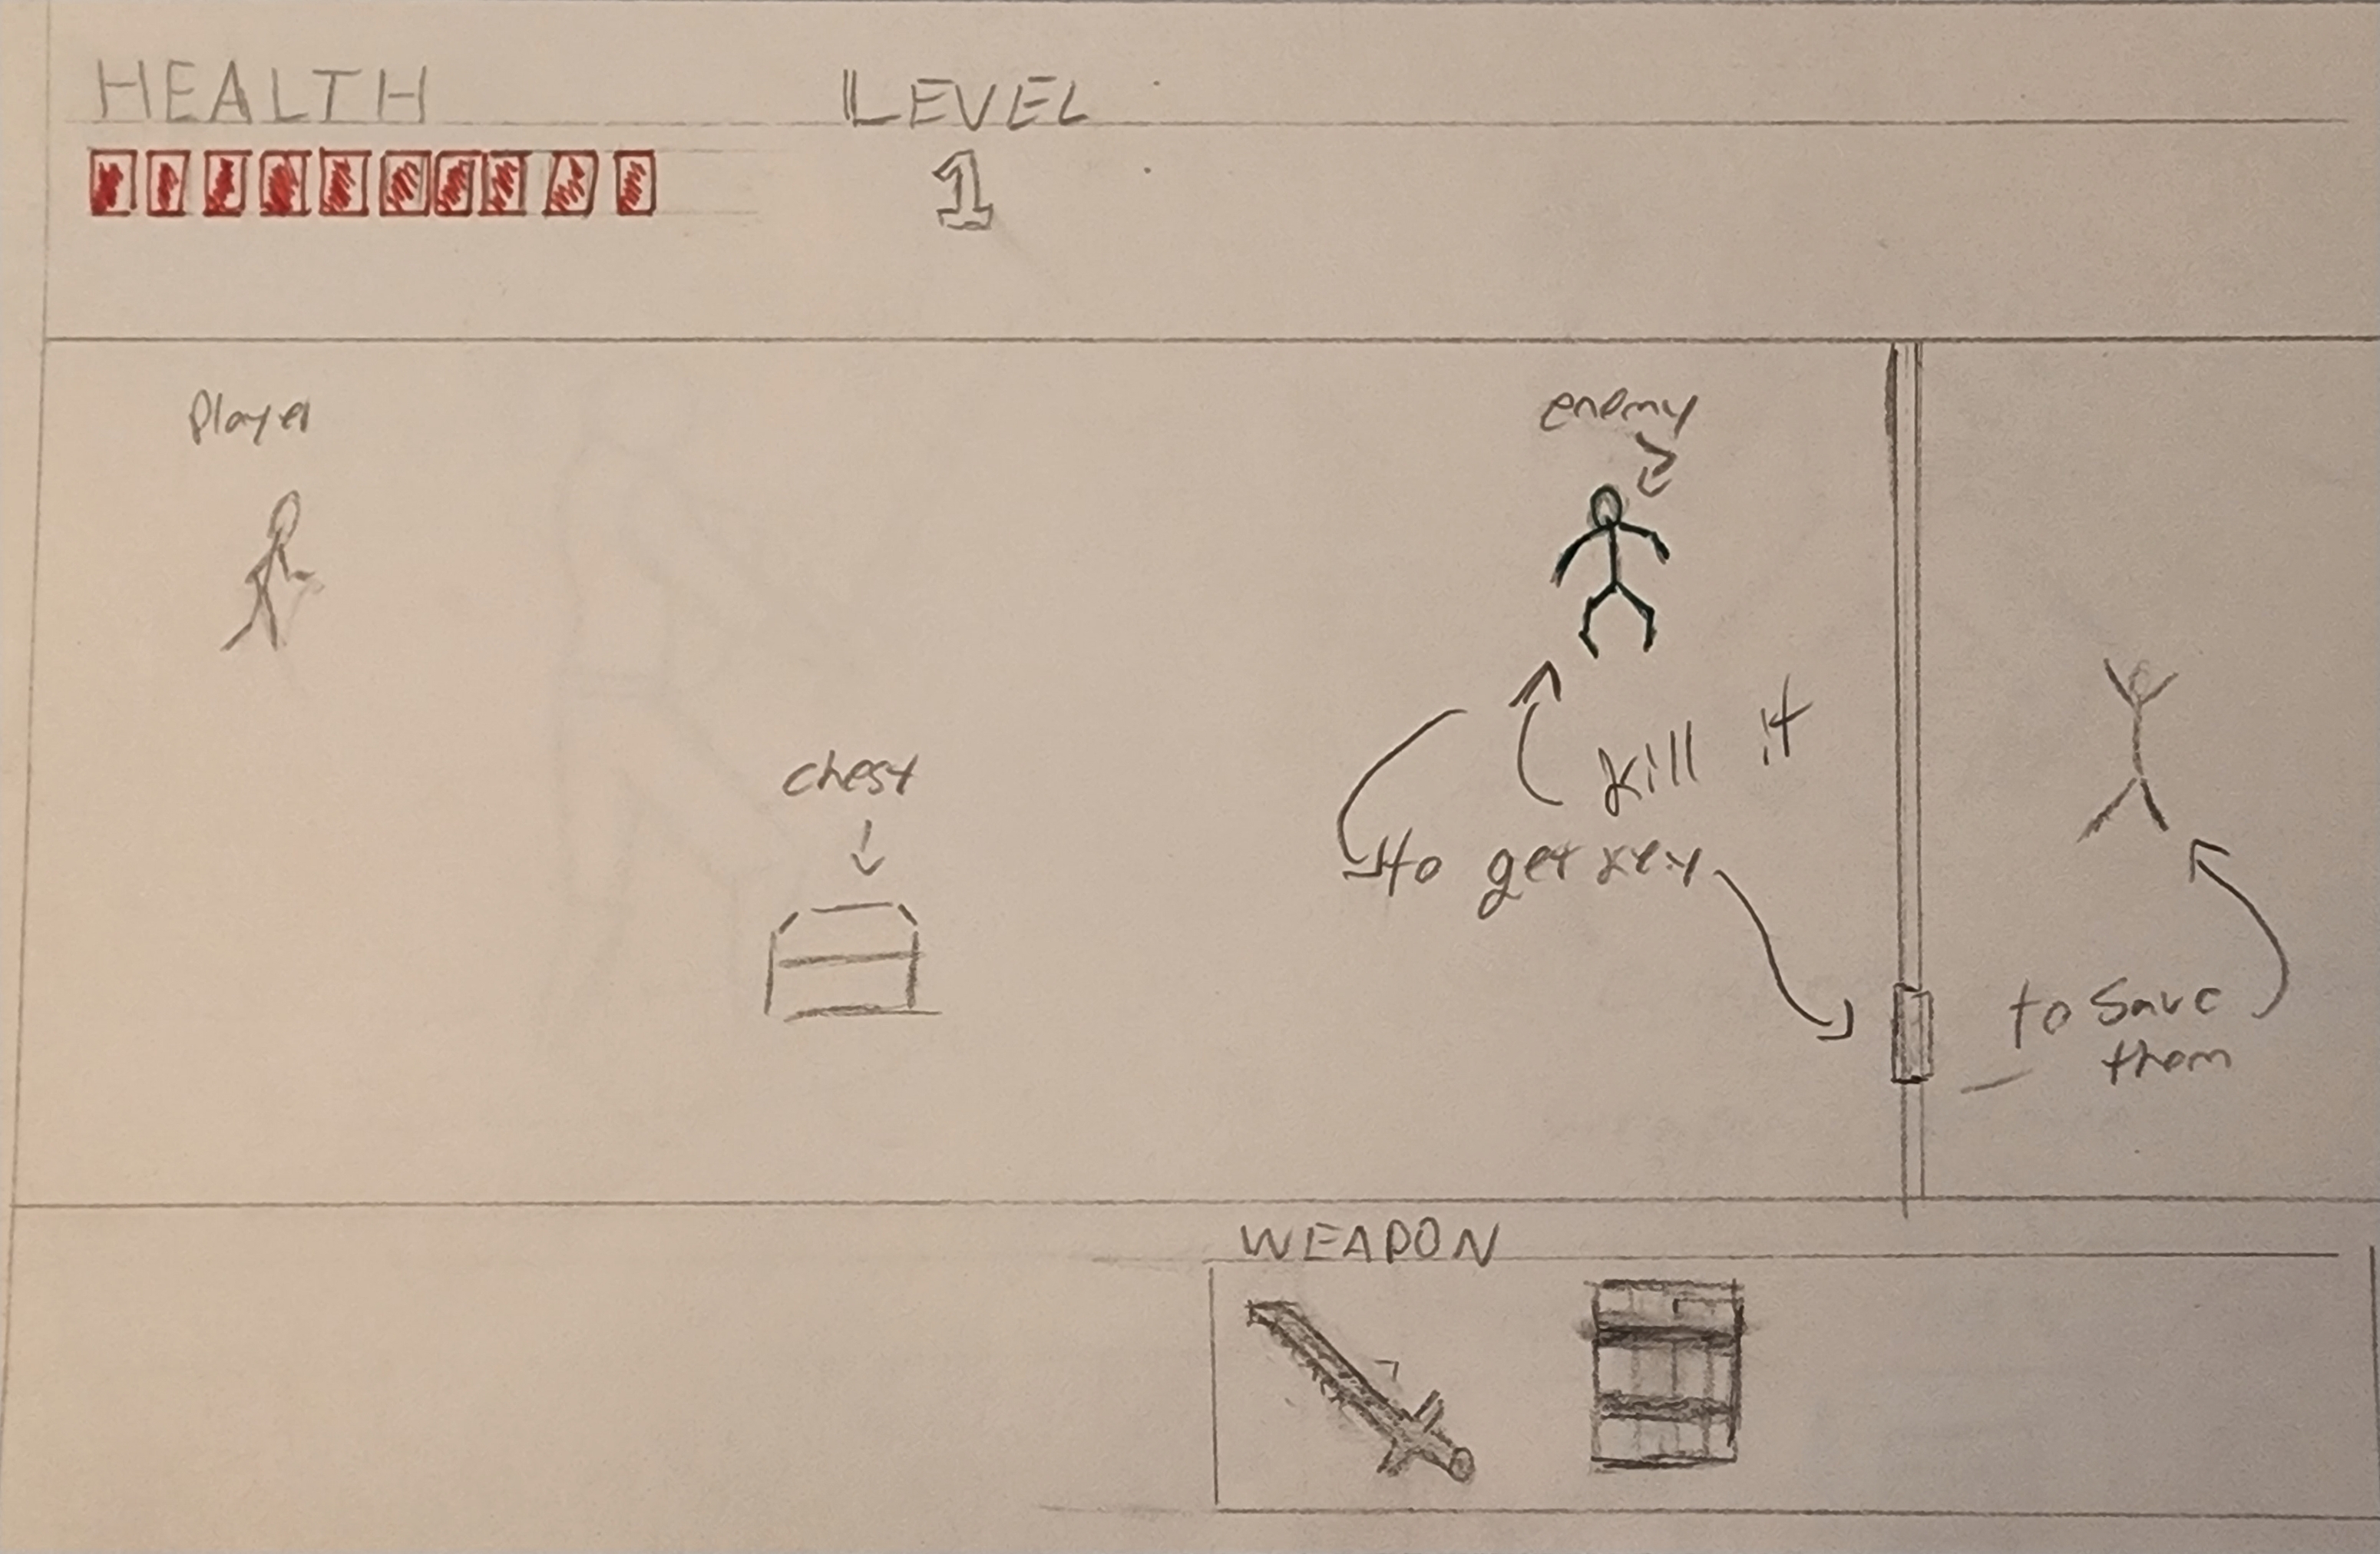 HEALTH
LEVEL
1
Player
enemy
chest
kill it
to get key
to save
them
WEAPON